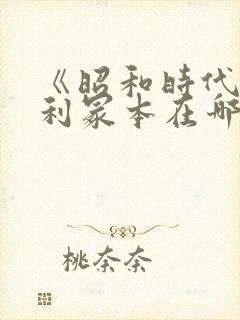 《昭和時代
利冢本在哪
桃奈奈